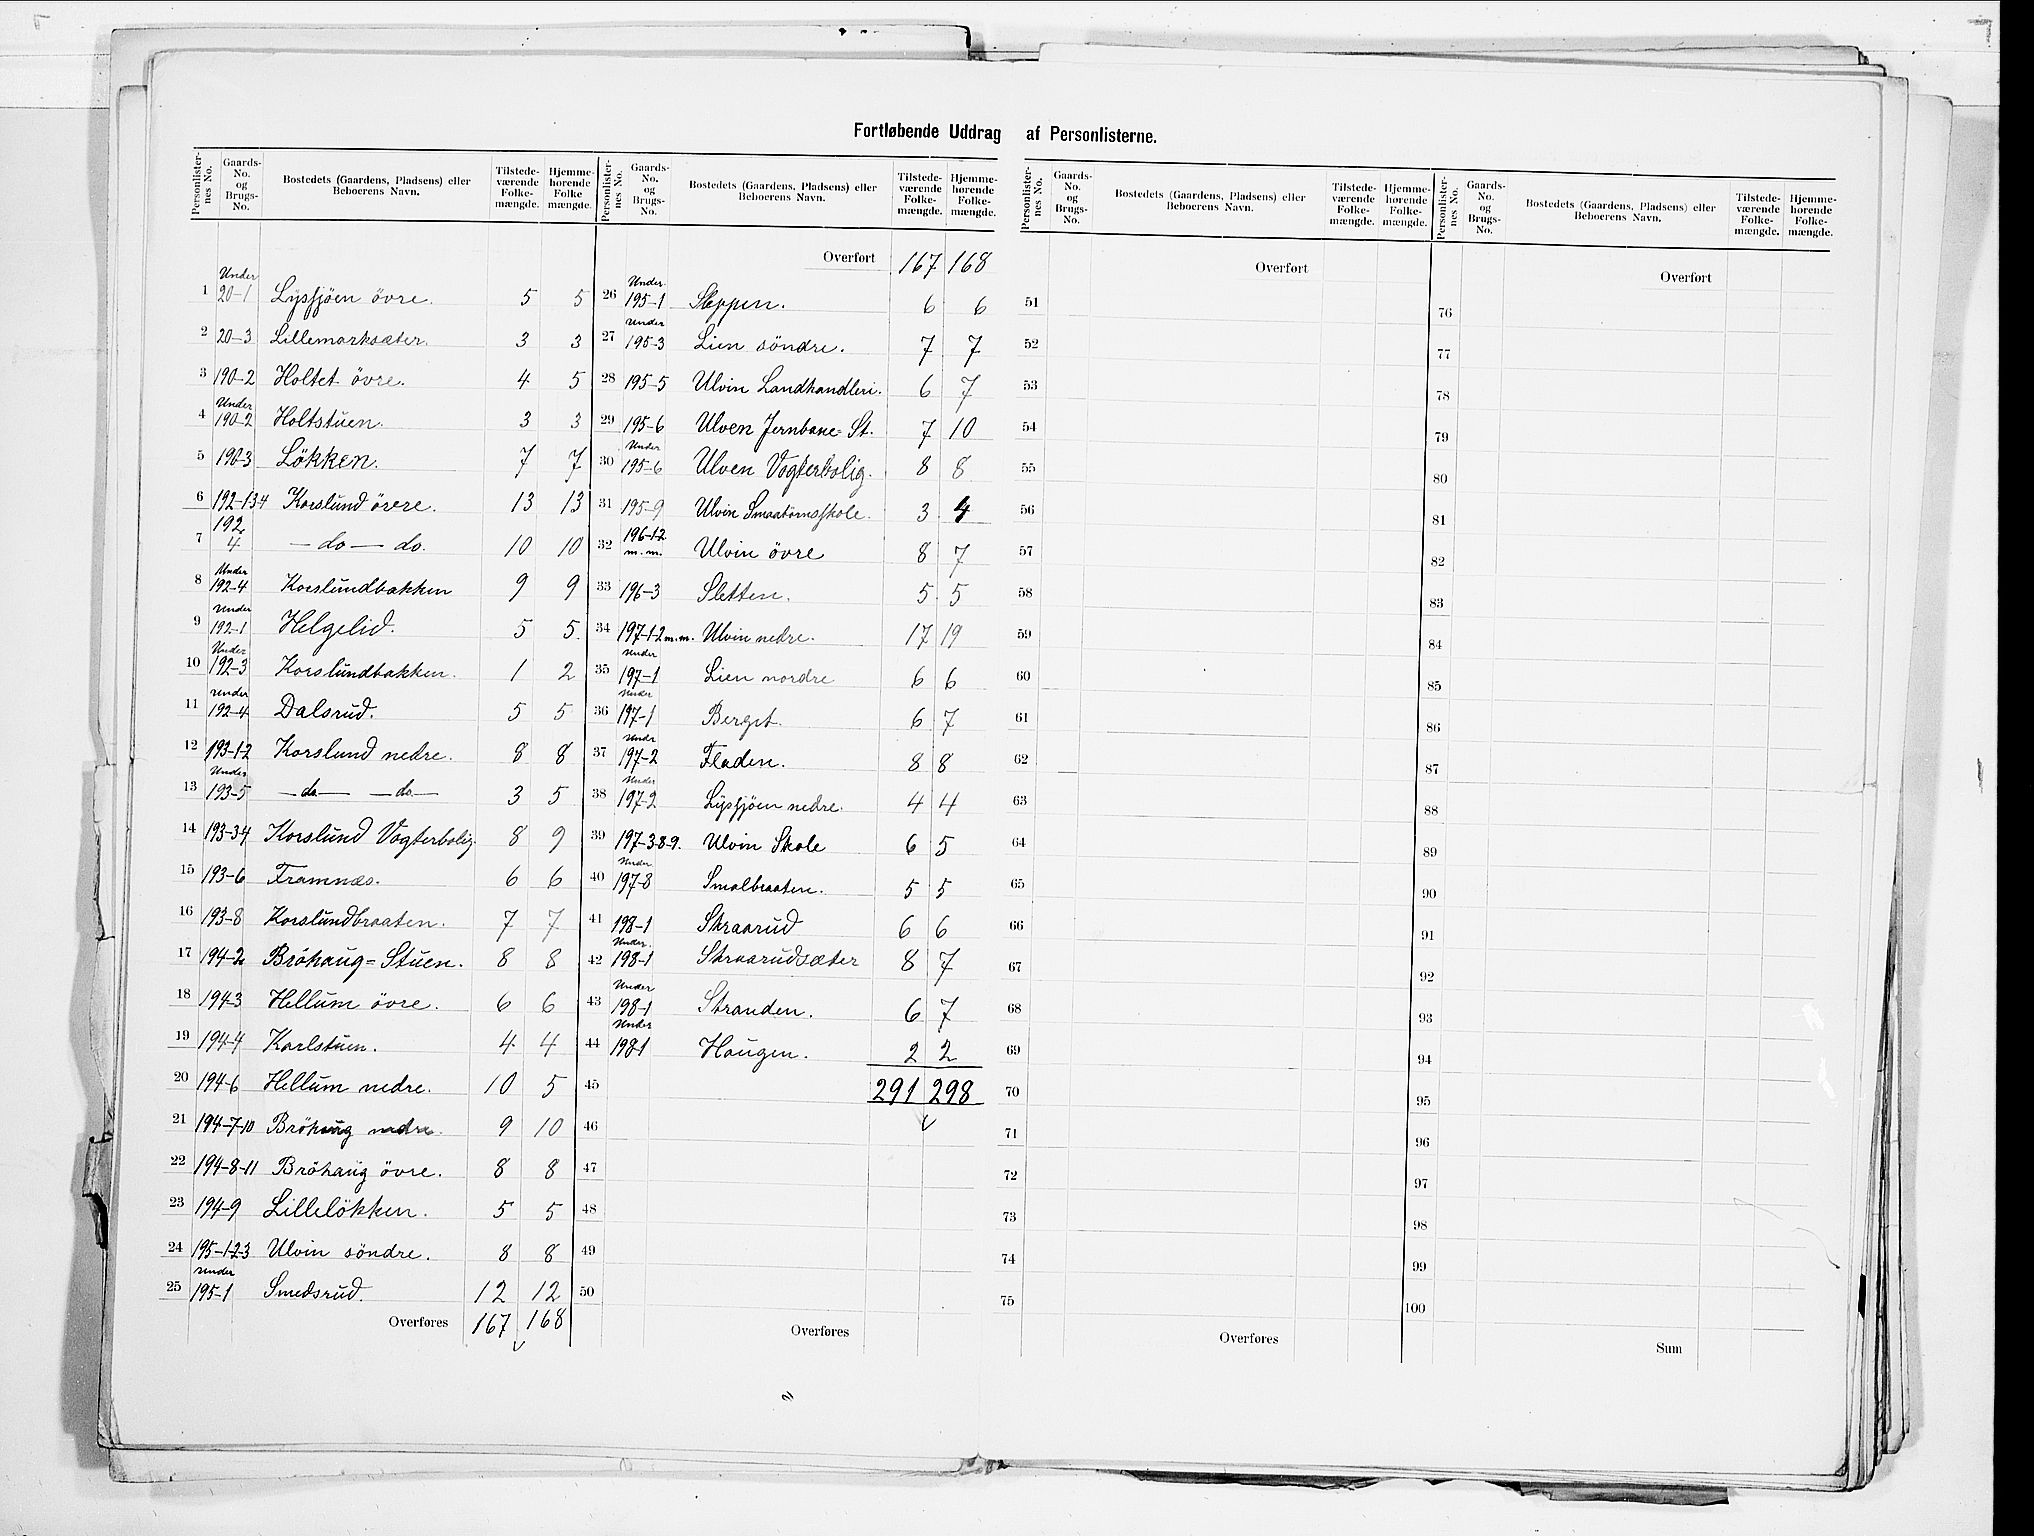 Fortløbende Uddrag af Personlisterne.
Personlister-nes No. Gaards-No. og Brugs-No. Bostedets (Gaardens, Pladsens) eller Beboerens Navn. Tilstede-værende Folke-mængde. Hjemme-hørende Folke mængde.
Personlister-nes No. Gaards-No. og Brugs-No. Bostedets (Gaardens, Pladsens) eller Beboerens Navn. Tilstede-værende Folke-mængde. Hjemme-hørende Folke-mængde.
Personlister-nes No. Gaards-No. og Brugs-No. Bostedets (Gaardens, Pladsens) eller Beboerens Navn. Tilstede-værende Folke-mængde. Hjemme-hørende Folke-mængde.
Personlister-nes No. Gaards-No. og Brugs-No. Bostedets (Gaardens, Pladsens) eller Beboerens Navn. Tilstede-værende Folke-mængde. Hjemme-hørende Folke-mængde.
1 Under 20-1 Lysfjøen övre. 5 5
2 20-3 Lillemorksæter. 3 3
3 190-2 Holtet övre. 4 5
4 Under 190-2 Holtstuen. 3 3
5 190-3 Lökken. 7 7
6 192-1-3-4 Korslund övere. 13 13
7 192-4 — do — do. 10 10
8 Under 192-4 Korslundbakken 9 9
9 Under 192-1 Helgelid. 5 5.
10 Under 192-3 Korslundbakken. 1 2
11 Under 192-4 Dalsrud. 5 5
12 193-1-2 Korslund nedre. 8 8
13 Under 193-5 — do — — do — 3 5
14 193-3-4 Korslund Vogterbolig. 8 9
15 193-6 Framnæs. 6 6
16 193-8 Korslundbraaten. 7 7
17 194-2 Bröhaug=Stuen. 8 8
18 194-3 Hellum övre. 6 6
19 194-4 Karlstuen. 4 4
20 194-6 Hellum nedre. 10 5
21 194-7-10 Bröhaug nedre. 9 10
22 194-8-11 Bröhaug övre. 8 8
23 194-9 Lillelökken. 5 5
24 195-1-2-3 Ulvin söndre. 8 8
25 Under 195-1 Smedsrud. 12 12
Overføres 167 168
Overført 167 168
26 Under 195-1 Sleppen. 6 6
27 Under 195-3 Lien söndre. 7 7
28 195-5 Ulvin Landhandleri. 6 7
29 195-6 Ulven Jernbane=St. 7 10
30 Under 195-6 Ulven Vogterbolig. 8 8
31 195-9 Ulvin Smaabørnsskole. 3 4
32 196-1-2 m.m. Ulvin övre 8 7
33 196-3 Sletten. 5 5
34 197-1-2 m.m. Ulvin nedre. 17 19
35 Under 197-1 Lien nordre 6 6
36 Under 197-1 Berget. 6 7
37 Under 197-2 Fladen. 8 8
38 Under 197-2 Lysfjøen nedre. 4 4
39 197-3-8-9. Ulvin Skole 6 5
40 Under 197-8 Smalbraaten. 5 5
41 198-1 Skraarud 6 6
42 Under 198-1 Skraarudsæter 8 7
43 Under 198-1 Stranden. 6 7
44 Under 198-1 Haugen. 2 2
45 291 298
46
47
48
49
50
Overføres
Overført
51
52
53
54
55
56
57
58
59
60
61
62
63
64
65
66
67
68
69
70
71
72
73
74
75
Overføres
Overført
76
77
78
79
80
81
82
83
84
85
86
87
88
89
90
91
92
93
94
95
96
97
98
99
100
Sum